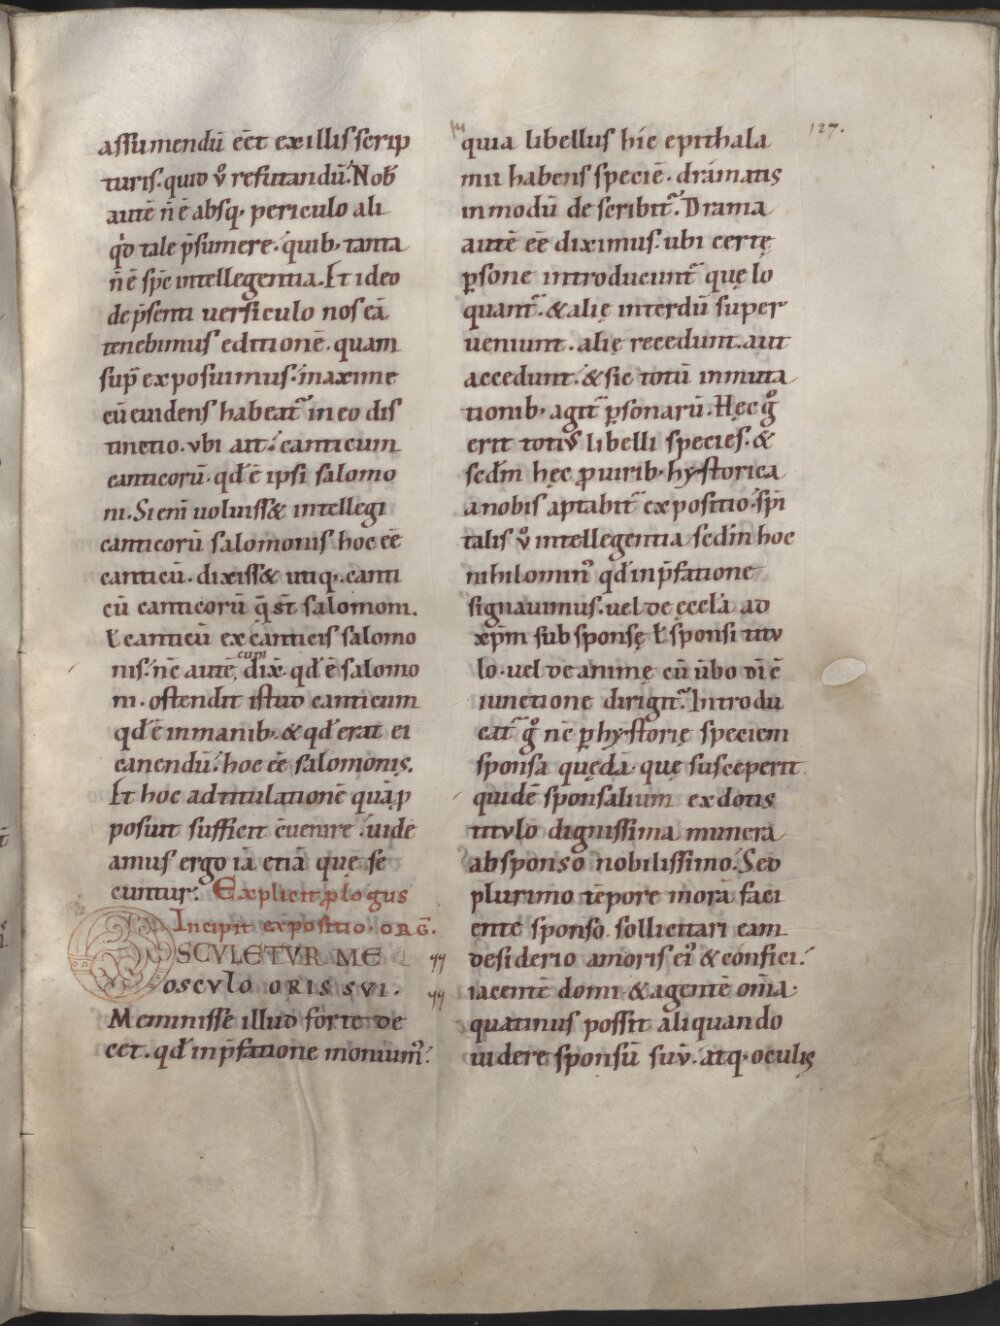 assumendū eēt ex illis scrip
turis. quid v̊ refutandū. Nob̄
autē n̄ ē absq; periculo ali
q'd tale p̄sumere. quib; tanta
n̄ ē sp̄e intellegentia. Et ideo
de p̄senti versiculo nos eā
tenebimus editionē. quam
sup̄ exposuimus. maxime
cū euidens habeat᷑ in eo dis
tinctio. vbi ait. canticum
canticorū. qd̄ ē ipsi salomo
ni. Si eni uoluiss& intellegi
canticorū salomonis hoc eē
canticū. dixiss& utiq;. canti
cū canticorū q̄ st̄ salomoni.
ł canticū ex canticis salomo
nis. nc̄ autē, cupi dix̄. qd̄ ē salomo
ni. ostendit istud canticum
qd̄ ē in manib; & qd̄ erat ei
canendū. hoc eē salomonis.
Et hoc ad titulationē quā p
posuit sufficit euenire. uide
amus ergo iā etiā quę se
cuntur. Explicit p̱logus
Incipit expositio. ORḠ.
OSCVLETVR ME
OSCVLO ORIS SVI.
Meminisse illud forte de
cet. qd̄ in p̄fatione monuim᷒.
127.
quia libellus hic epithala
mii habens speciē. dramatis
in modū describit᷑. Drama
autē eē diximus. ubi certę
p̱sone introducunt᷑ quę lo
quant᷑. & alię interdū super
ueniunt. alię recedunt. aut
accedunt. & sic totū inmuta
tionib; agit᷑ p̱sonarū. Hęc g̊
erit toti᷒ libelli species. &
scd̄m hęc p uirib; hystorica
a nobis aptabit᷑ expositio. spi
talis v̊ intellegentia scd̄m hoc
nihilomin᷒ qd̄ in p̄fatione
signauimus. uel de ęccła ad
xp̄m sub sponsę ł sponsi titv
lo. uel de animę cū ūbo dī ē
iunctione dirigit᷑. Introdu
cat᷑ g̊ nc̄ p̱ hystorię speciem
sponsa quędā. quę susceperit
quidē sponsalium ex dotis
titvlo dignissima munera
ab sponso nobilissimo. Sed
plurimo tēpore morā faci
ente sponso. sollicitari eam
desiderio amoris ei᷒ & confici.
iacentē domi & agentē om̄a.
quatinus possit aliquando
uidere sponsū suv̄. atq; oculis